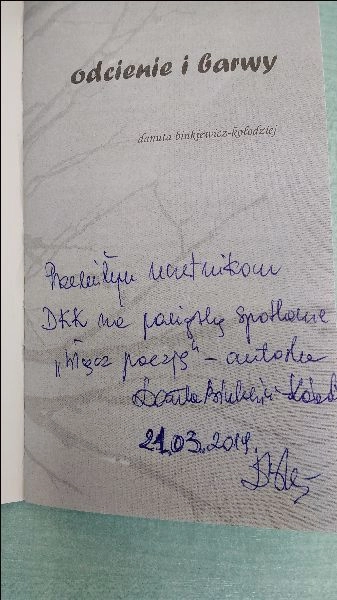 odcienie i barwy
danuta binkiewicz-kołodziej
Przemiłym uczestnikom
DKK na pamiątkę spotkania
„Włącz poezję” – autorka
Danuta
21.03.2019.